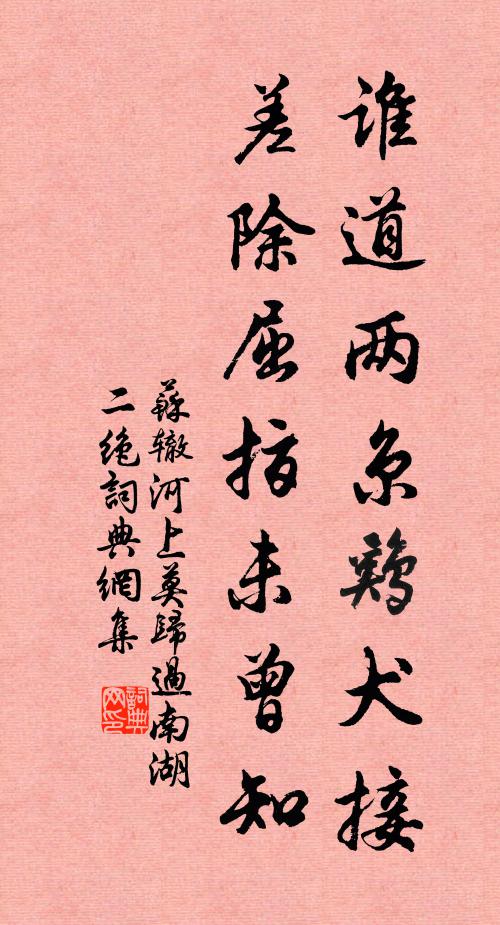 谁道两京鷄犬接
差除屈指未曾知
蘇辙河上莫歸過南湖
二絶詞典網集
詞典网印